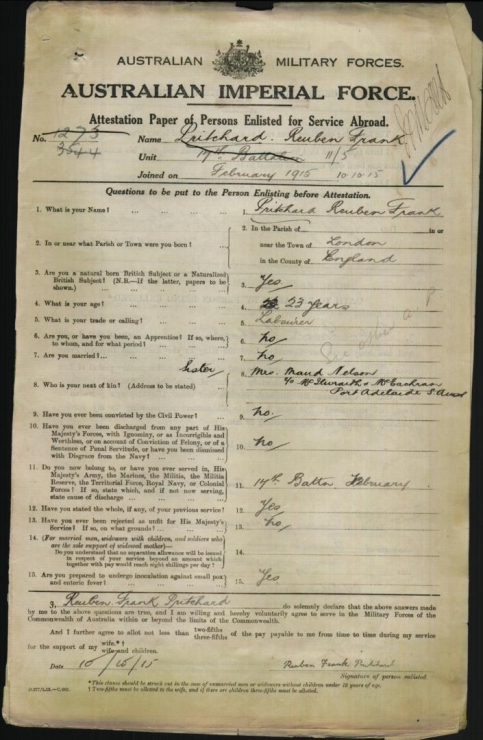 AUSTRALIAN MILITARY FORCES.
AUSTRALIAN IMPERIAL FORCE.
Attestation Paper of Persons Enlisted for Service Abroad.
No. 1273 Name Pritchard. Reuben Frank
3544 Unit 14th Battalion 11/5
Joined on February 1915 10.10.15
Questions to be put to the Person Enlisting before Attestation.
1. What is your Name? ... 1. Pritchard Reuben Frank
2. In or near what Parish or Town were you born? ... 2. In the Parish of in or
near the Town of London
in the County of England
3. Are you a natural born British Subject or a Naturalized
British Subject? (N.B.—If the latter, papers to be
shown.) 3. Yes
4. What is your age? ... 4. 23 years
5. What is your trade or calling? ... 5. Labourer
6. Are you, or have you been, an Apprentice? If so, where,
to whom, and for what period? ... 6. No
7. Are you married? ... 7. No
Sister
8. Who is your next of kin? (Address to be stated) ... 8. Mrs. Maud Nelson
c/o McIlwraith & McEachran
Port Adelaide S. Aust
9. Have you ever been convicted by the Civil Power? ... 9. No.
10. Have you ever been discharged from any part of His
Majesty's Forces, with Ignominy, or as Incorrigible and
Worthless, or on account of Conviction of Felony, or of a
Sentence of Penal Servitude, or have you been dismissed
with Disgrace from the Navy? ... 10. No
11. Do you now belong to, or have you ever served in, His
Majesty's Army, the Marines, the Militia, the Militia
Reserve, the Territorial Force, Royal Navy, or Colonial
Forces? If so, state which, and if not now serving,
state cause of discharge ... 11. 14th Battn February
12. Have you stated the whole, if any, of your previous service? 12. Yes
13. Have you ever been rejected as unfit for His Majesty's
Service? If so, on what grounds? ... 13. No
14. (For married men, widowers with children, and soldiers who
are the sole support of widowed mother)—
Do you understand that no separation allowance will be issued
in respect of your service beyond an amount which
together with pay would reach eight shillings per day? 14.
15. Are you prepared to undergo inoculation against small pox
and enteric fever? ... 15. Yes
I, Reuben Frank Pritchard do solemnly declare that the above answers made
by me to the above questions are true, and I am willing and hereby voluntarily agree to serve in the Military Forces of the
Commonwealth of Australia within or beyond the limits of the Commonwealth.
And I further agree to allot not less than two-fifths
three-fifths of the pay payable to me from time to time during my service
for the support of my wife.*†
wife and children.
Date 10/10/15 Reuben Frank Pritchard
Signature of person enlisted.
*This clause should be struck out in the case of unmarried men or widowers without children under 18 years of age.
† Two-fifths must be allotted to the wife, and if there are children three-fifths must be allotted.